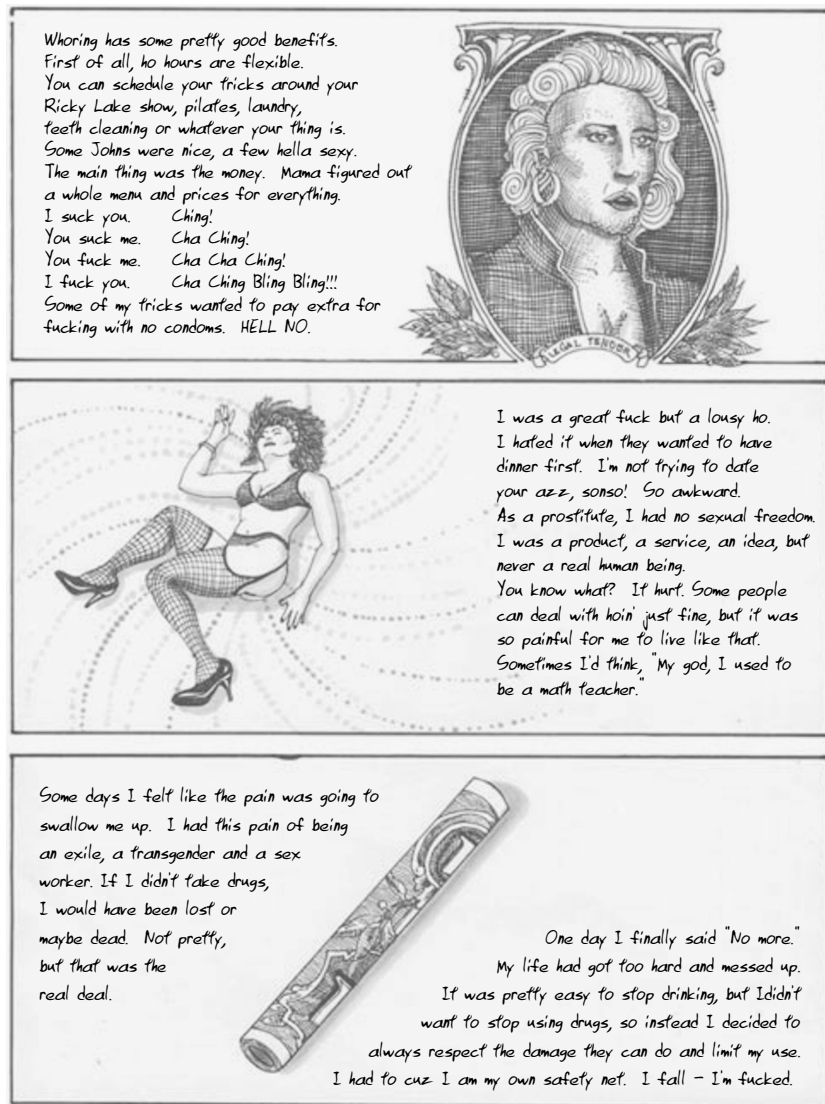 Whoring has some pretty good benefits.
First of all, ho hours are flexible.
You can schedule your tricks around your
Ricky Lake show, pilates, laundry,
teeth cleaning or whatever your thing is.
Some Johns were nice, a few hella sexy.
The main thing was the money. Mama figured out
a whole menu and prices for everything.
I suck you. Ching!
You suck me. Cha Ching!
You fuck me. Cha Cha Ching!
I fuck you. Cha Ching Bling Bling!!!
Some of my tricks wanted to pay extra for
fucking with no condoms. HELL NO.
LEGAL TENDER
I was a great fuck but a lousy ho.
I hated it when they wanted to have
dinner first. I'm not trying to date
your azz, sonso! So awkward.
As a prostitute, I had no sexual freedom.
I was a product, a service, an idea, but
never a real human being.
You know what? It hurt. Some people
can deal with hoin' just fine, but it was
so painful for me to live like that.
Sometimes I'd think, "My god, I used to
be a math teacher."
Some days I felt like the pain was going to
swallow me up. I had this pain of being
an exile, a transgender and a sex
worker. If I didn't take drugs,
I would have been lost or
maybe dead. Not pretty,
but that was the
real deal.
One day I finally said "No more."
My life had got too hard and messed up.
It was pretty easy to stop drinking, but Ididn't
want to stop using drugs, so instead I decided to
always respect the damage they can do and limit my use.
I had to cuz I am my own safety net. I fall - I'm fucked.